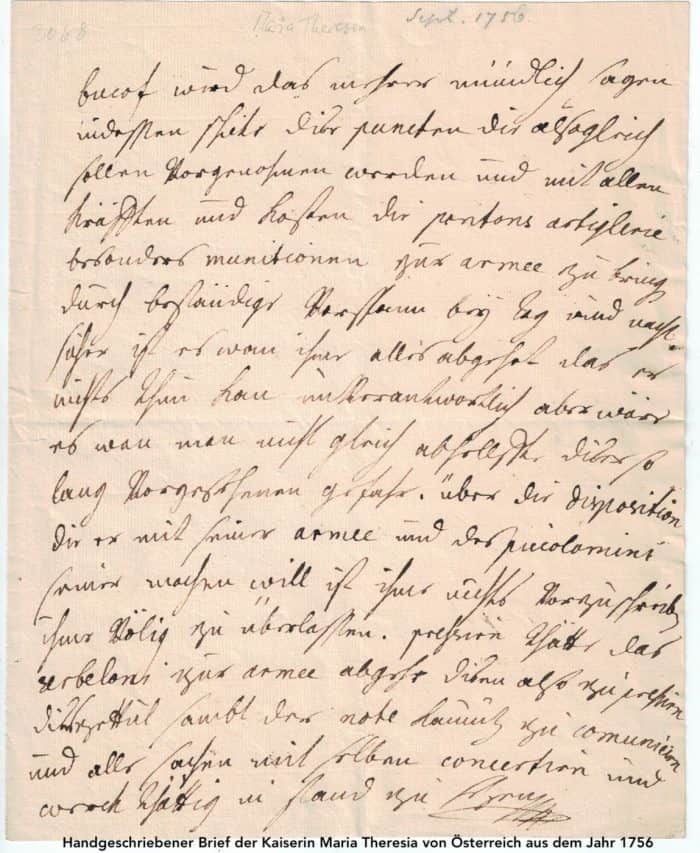 3068
Maria Theresia
Sept. 1756
wird das mehrer mündlich sagen
indessen dise puncten die alsogleich
sollen vorgenohmen werden und mit allen
kräfften und kosten die pontons artiglerie
besonders munitionen zur armee zu bringen
durch beständige vorspann bey tag und nacht
sicher ist es wan ihme alles abgehet das er
nichts thun kan unverantwortlich aber wäre
es wan man nicht gleich abhelffete diser so
lang vorgesehenen gefahr. über die disposition
die er mit seiner armee und des picolomini
seiner machen will ist ihme nichts vorzuschreiben
ihme völig zu überlassen. das
zur armee abgehe disen also zu
sambt der note kaunitz zu
und alle sachen mit selben und
in stand zu
Handgeschriebener Brief der Kaiserin Maria Theresia von Österreich aus dem Jahr 1756